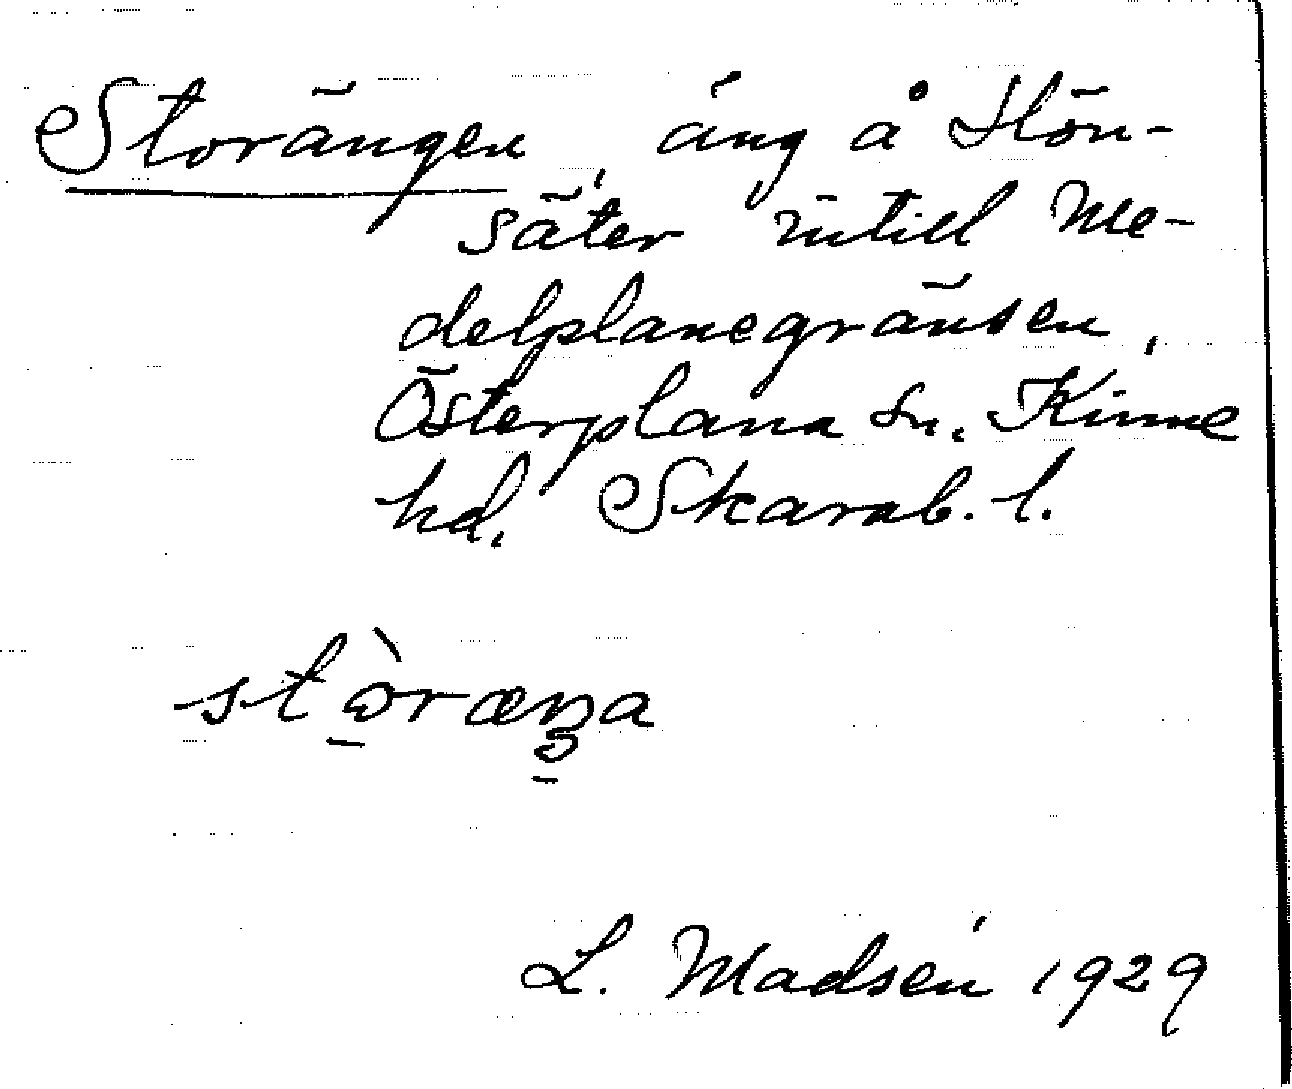 Storängen, äng å Hön-
säter intill Me-
delplanegränsen,
Österplana sn. Kinne
hd. Skarab. l.
stòræŋa
L. Madsén 1929